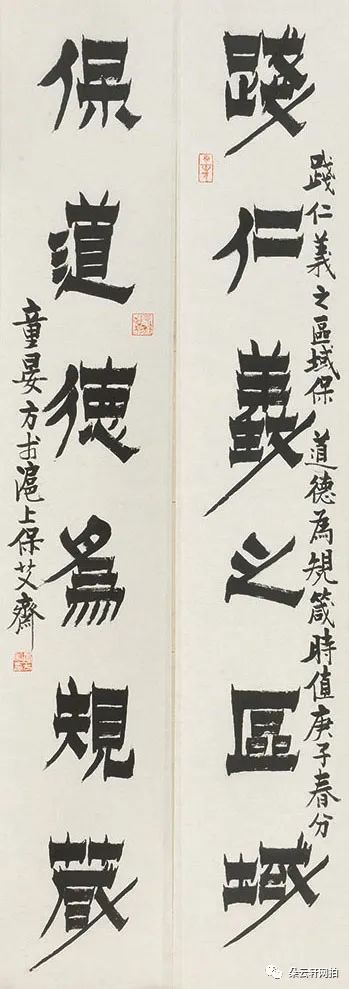 踐仁義之區域保道德為規箴時值庚子春分
踐仁義之區域
保道德爲規葴
童晏方於滬上保艾齋
朵云轩网拍